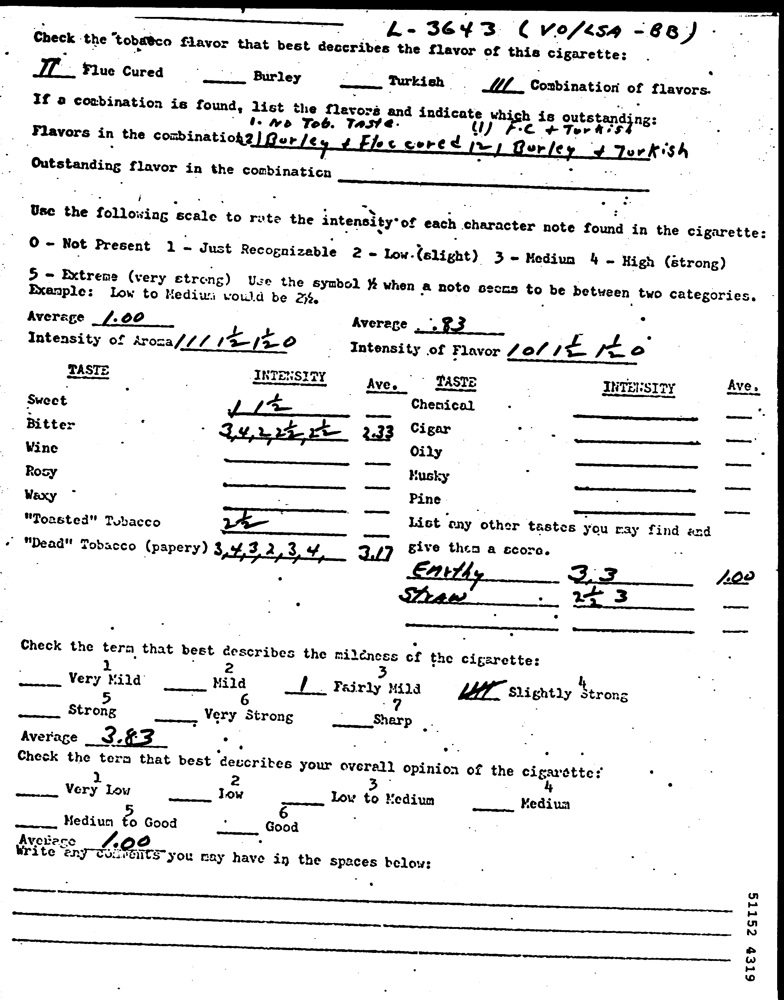 L-3643 (VO/LSA-BB)
Check the tobacco flavor that best describes the flavor of this cigarette:
II Flue Cured ____ Burley ____ Turkish III Combination of flavors.
If a combination is found, list the flavors and indicate which is outstanding:
1. No Tob. Taste. (1) F.C + Turkish
Flavors in the combination 2) Burley & Flue cured (2) Burley & Turkish
Outstanding flavor in the combination
Use the following scale to rate the intensity of each character note found in the cigarette:
0 - Not Present 1 - Just Recognizable 2 - Low (slight) 3 - Medium 4 - High (strong)
5 - Extreme (very strong) Use the symbol ½ when a note seems to be between two categories.
Example: Low to Medium would be 2½.
Average 1.00 Average .83
Intensity of Aroma / / / 1½ 1½ 0 Intensity of Flavor / 0 / 1½ 1½ 0
TASTE INTENSITY Ave. TASTE INTENSITY Ave.
Sweet 1 1½ Chemical
Bitter 3,4,2,2½,2½ 2.33 Cigar
Wine Oily
Rosy Musky
Waxy Pine
"Toasted" Tobacco 2½ List any other tastes you may find and
"Dead" Tobacco (papery) 3,4,3,2,3,4, 3.17 give them a score.
Earthy 3, 3 1.00
Straw 2½ 3
Check the term that best describes the mildness of the cigarette:
1 2 3 4
Very Mild Mild 1 Fairly Mild IIII Slightly Strong
5 6 7
Strong Very Strong Sharp
Average 3.83
Check the term that best describes your overall opinion of the cigarette:
1 2 3 4
Very Low Low Low to Medium Medium
5 6
Medium to Good Good
Average 1.00
Write any comments you may have in the spaces below:
51152 4319